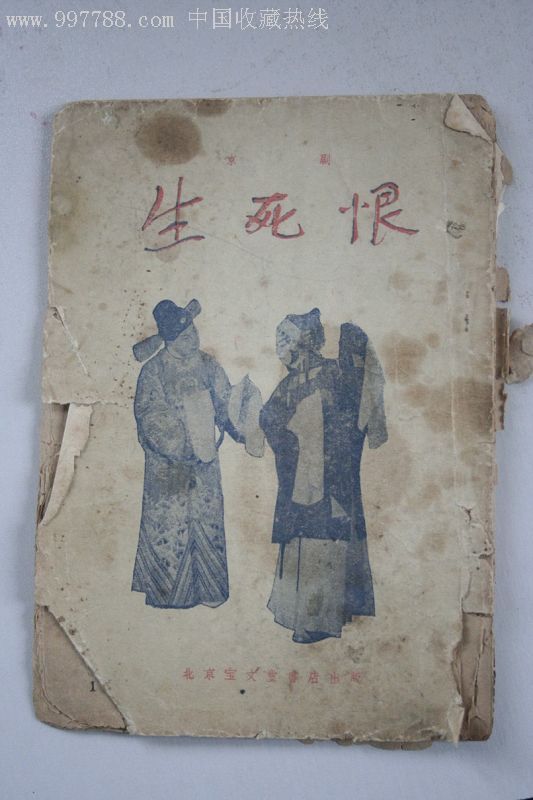 www.997788.com 中国收藏热线
京剧
生死恨
北京宝文堂书店出版
1